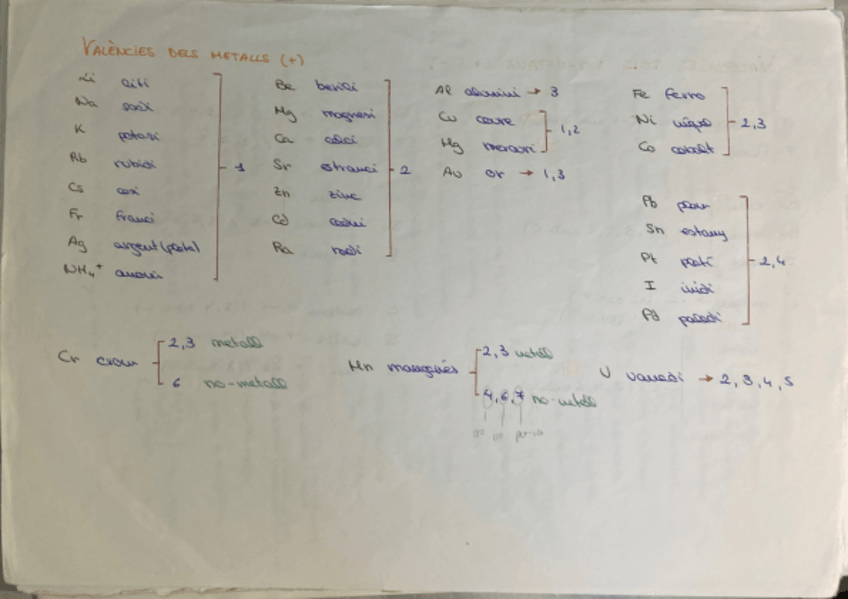 VALÈNCIES DELS METALLS (+)
Li liti
Na sodi
K potasi
Rb rubidi
Cs cesi
Fr franci
Ag argent (plata)
NH₄⁺ amoni
1
Be beril·li
Mg magnesi
Ca calci
Sr estronci
Zn zinc
Cd cadmi
Ra radi
2
Al alumini → 3
Cu coure
Hg mercuri
1,2
Au or → 1,3
Fe ferro
Ni níquel
Co cobalt
2,3
Pb plom
Sn estany
Pt platí
I iridi
Pd paladi
2,4
Cr crom
2,3 metall
6 no-metall
Mn manganès
2,3 metall
4,6,7 no-metall
V vanadi → 2,3,4,5